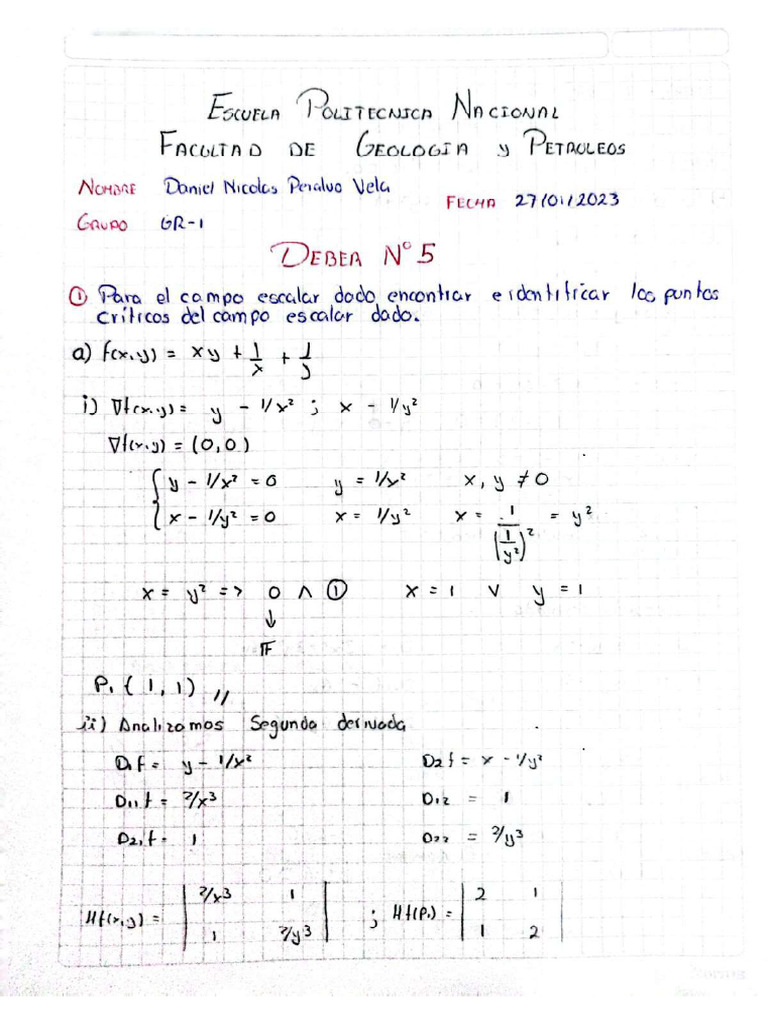 ESCUELA POLITECNICA NACIONAL
FACULTAD DE GEOLOGIA y PETROLEOS
NOMBRE Daniel Nicolas Peralvo Vela
FECHA 27/01/2023
GRUPO GR-1
DEBER N° 5
① Para el campo escalar dado encontrar e identificar los puntos
críticos del campo escalar dado.
a) f(x,y) = xy + 1/x + 1/y
i) ∇f(x,y) = y - 1/x² ; x - 1/y²
∇f(x,y) = (0,0)
{ y - 1/x² = 0 y = 1/x² x, y ≠ 0
x - 1/y² = 0 x = 1/y² x = 1/(1/y²)² = y²
x = y² => 0 ∧ ① x = 1 ∨ y = 1
↓
F
P₁ (1, 1) //
ii) Analizamos Segunda derivada
D₁f = y - 1/x² D₂f = x - 1/y²
D₁₁f = 2/x³ D₁₂ = 1
D₂₁f = 1 D₂₂ = 2/y³
Hf(x,y) = | 2/x³ 1 | ; Hf(P₁) = | 2 1 |
| 1 2/y³ | | 1 2 |